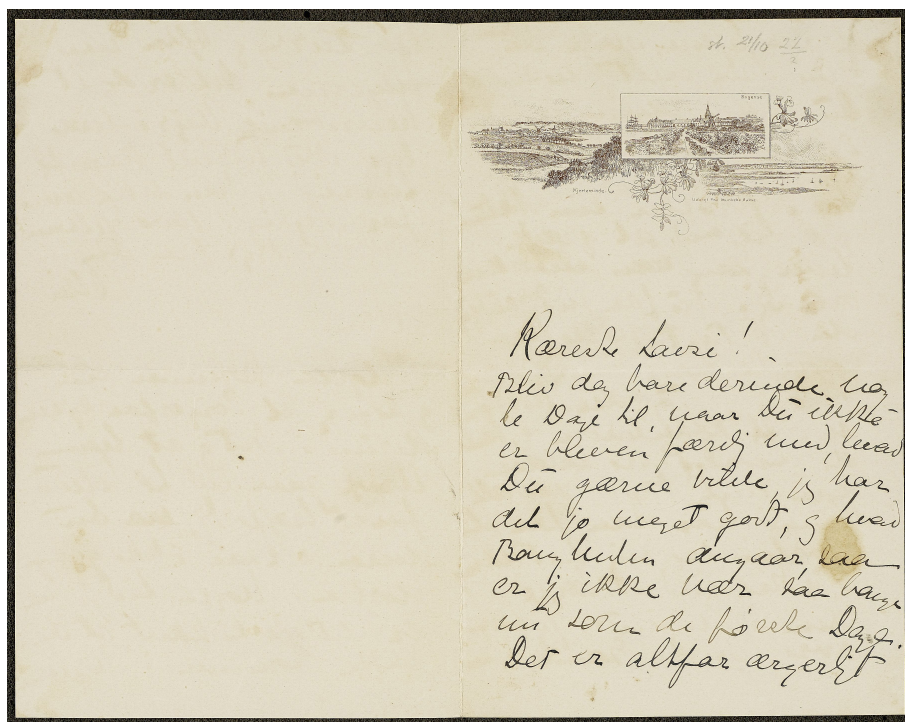 st. 21/10 22
Bogense
Kjerteminde
Kæreste Lavsi!
Bliv dog bare derinde nog
le Dage til, naar Du ikke
er bleven færdig med, hvad
Du gærne vilde, jeg har
det jo meget godt, og hvad
Bangheden angaar, saa
er jeg ikke nær saa bange
nu som de første Dage.
Det er altfor ærgerligt